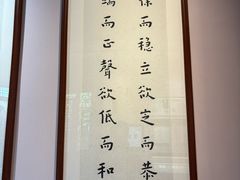 徐而稳立欲定而恭
端而正聲欲低而和